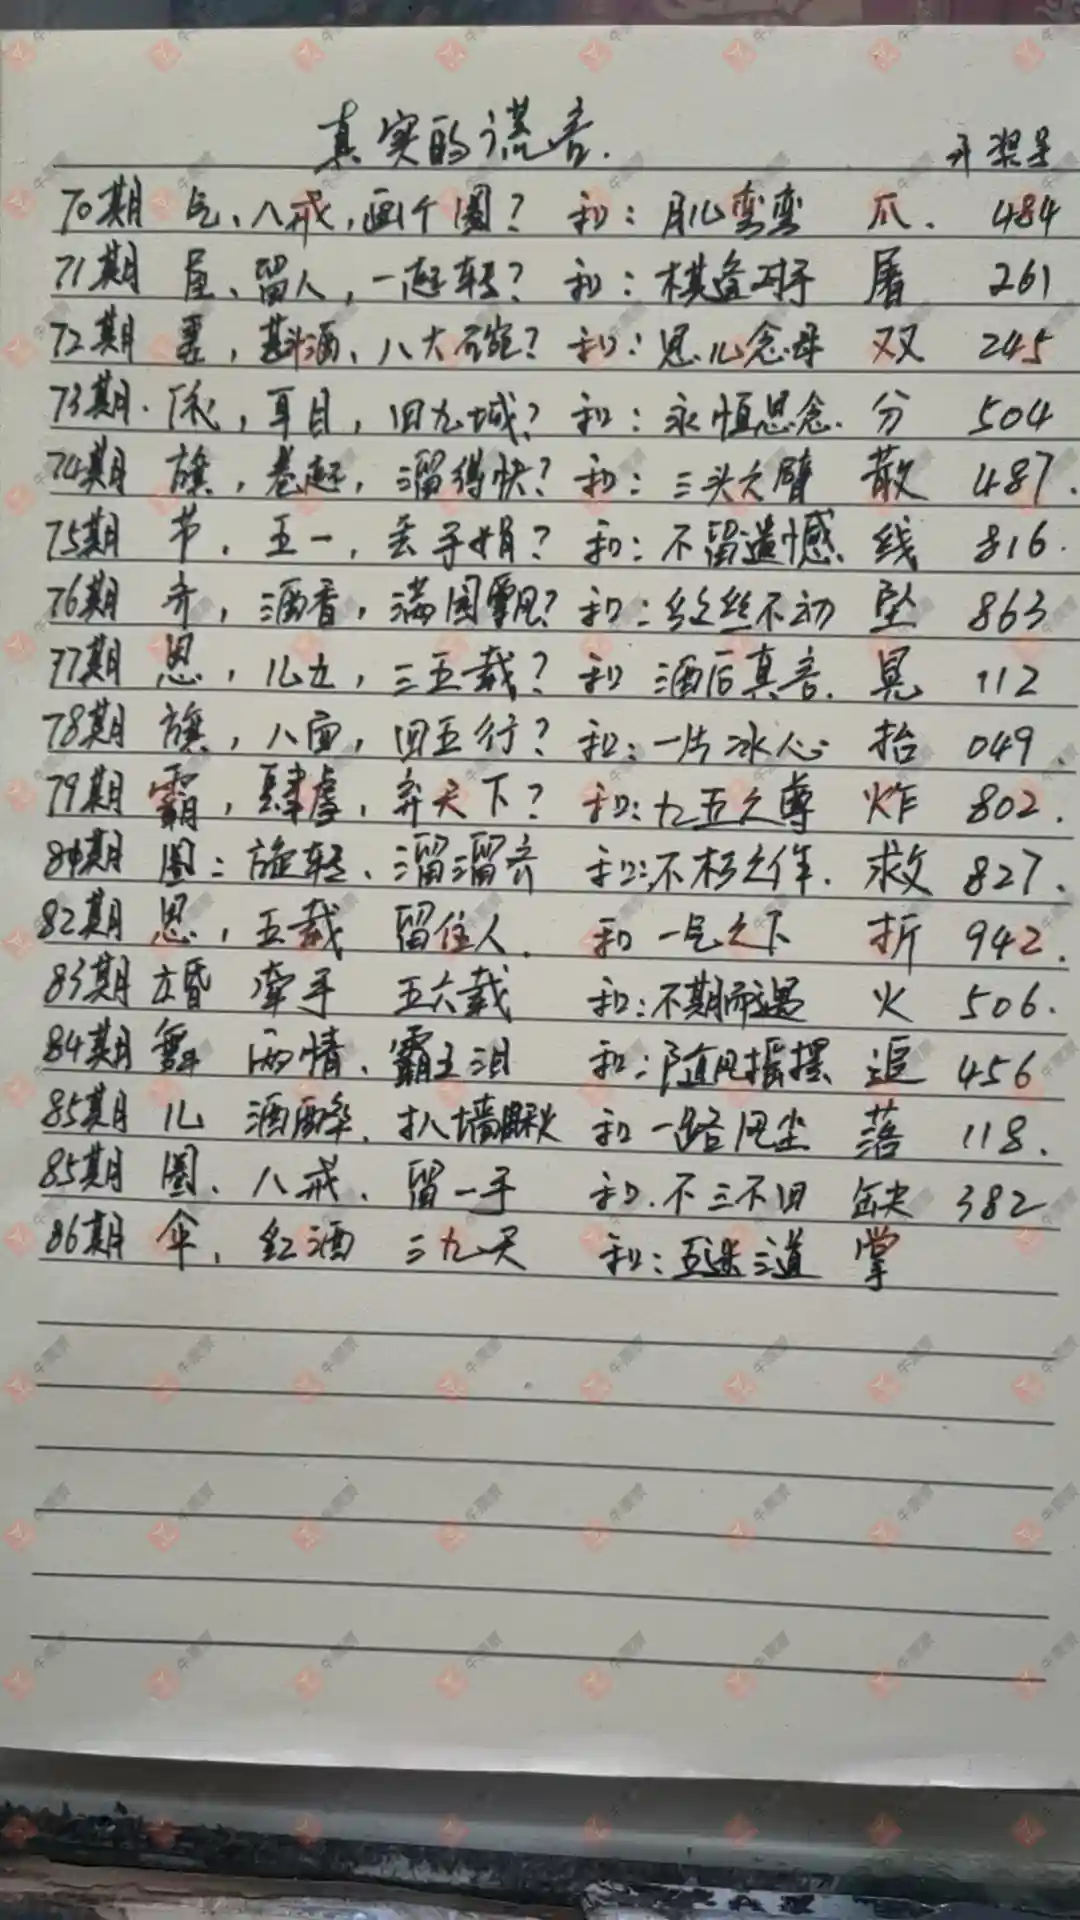 真实的谎言. 开奖号
70期 气、八戒,画个圈? 和: 月儿弯弯 爪. 484
71期 屋、留人,一起转? 和: 棋逢对手 屠 261
72期 ,斟酒、八大碗? 和: 思儿念母 双 245
73期. 依,耳目,旧九城? 和: 永恒思念. 分 504
74期 旗,卷起,溜得快? 和: 三头六臂 散 487.
75期 节,五一,丢手绢? 和: 不留遗憾. 线 816.
76期 齐,酒香,满园飘? 和: 纹丝不动 坠 863
77期 恩,儿九,三五载? 和 酒后真言. 晃 112
78期 旗,八面,四五行? 和: 一片冰心 抬 049.
79期 霸,肆虐,弃天下? 和: 九五之尊 炸 802.
81期 圈: 旋转、溜溜六 和: 不朽之作. 救 827.
82期 恩,五载 留住人. 和 一气之下 折 942.
83期 婚 牵手 五六载 和: 不期而遇 火 506.
84期 舞 两情、霸王泪 和: 随风摇摆 追 456
85期 儿 酒醉、扒墙瞅 和 一路风尘 落 118.
85期 圈、八戒、留一手 和. 不三不四 缺 382
86期 伞,红酒 三九天 和: 五迷三道 掌
牛彩票